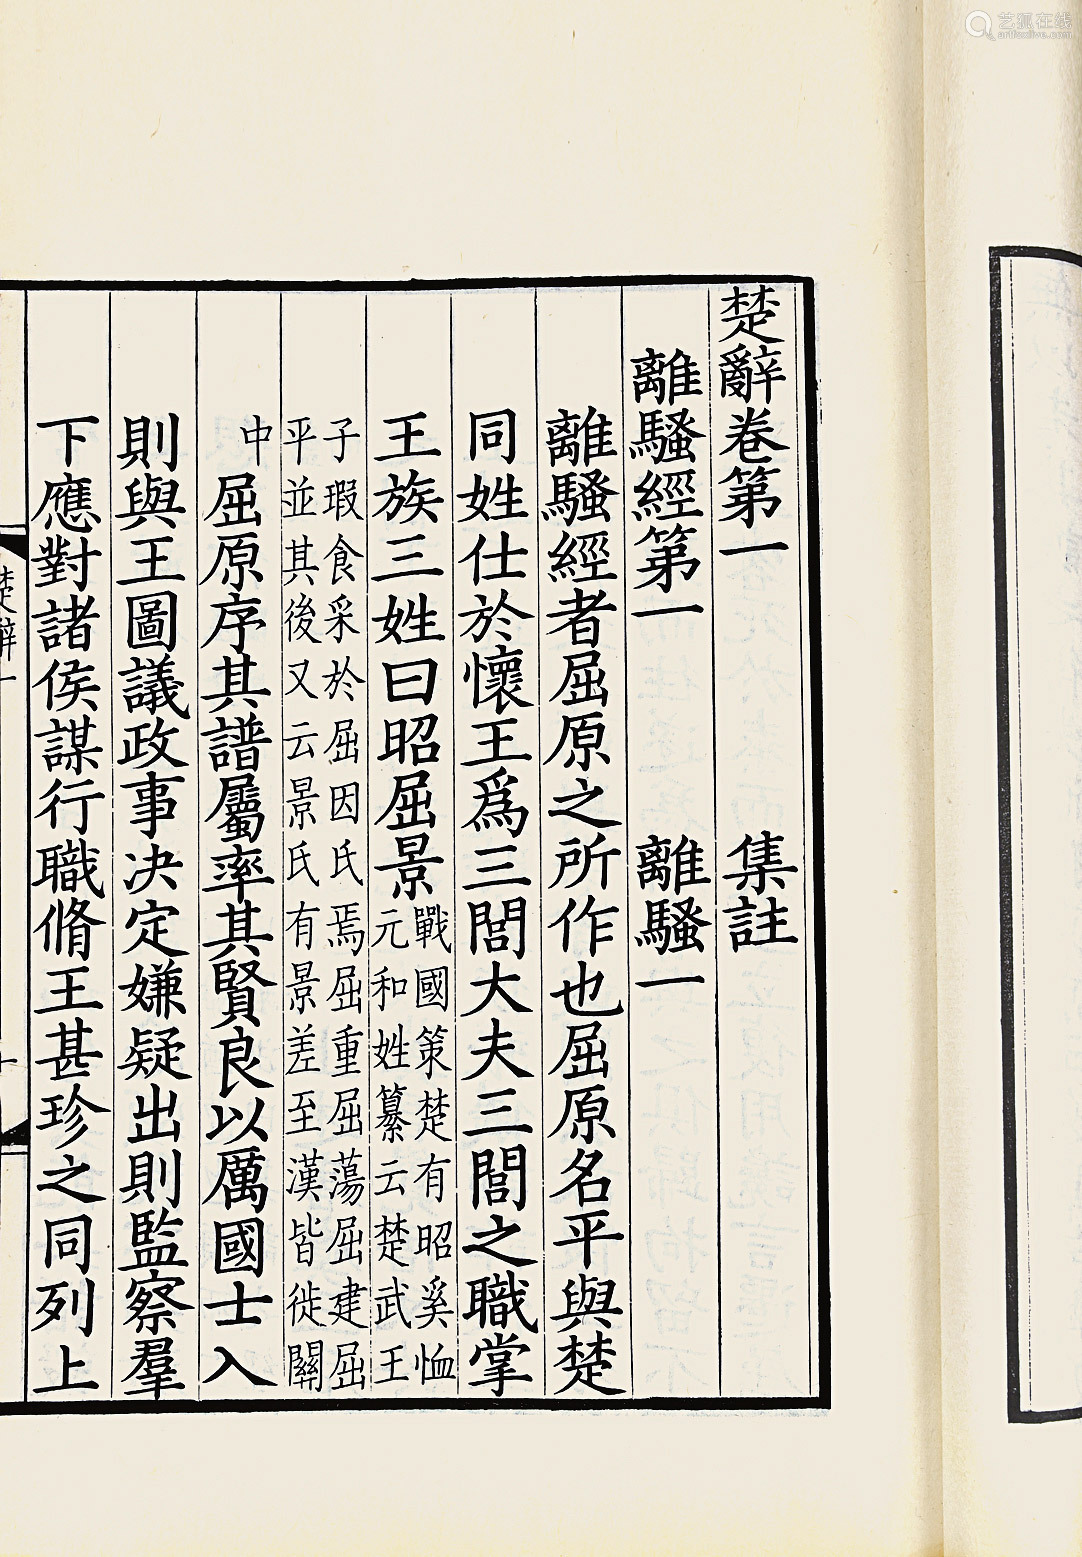 楚辭卷第一　集註
離騷經第一　離騷一
離騷經者屈原之所作也屈原名平與楚
同姓仕於懷王為三閭大夫三閭之職掌
王族三姓曰昭屈景
戰國策楚有昭奚恤
元和姓纂云楚武王
子瑕食采於屈因氏焉屈重屈蕩屈建屈
平並其後又云景氏有景差至漢皆徙關
中
屈原序其譜屬率其賢良以厲國士入
則與王圖議政事决定嫌疑出則監察羣
下應對諸侯謀行職脩王甚珍之同列上
楚辭一
艺狐在线
artfoxlive.com